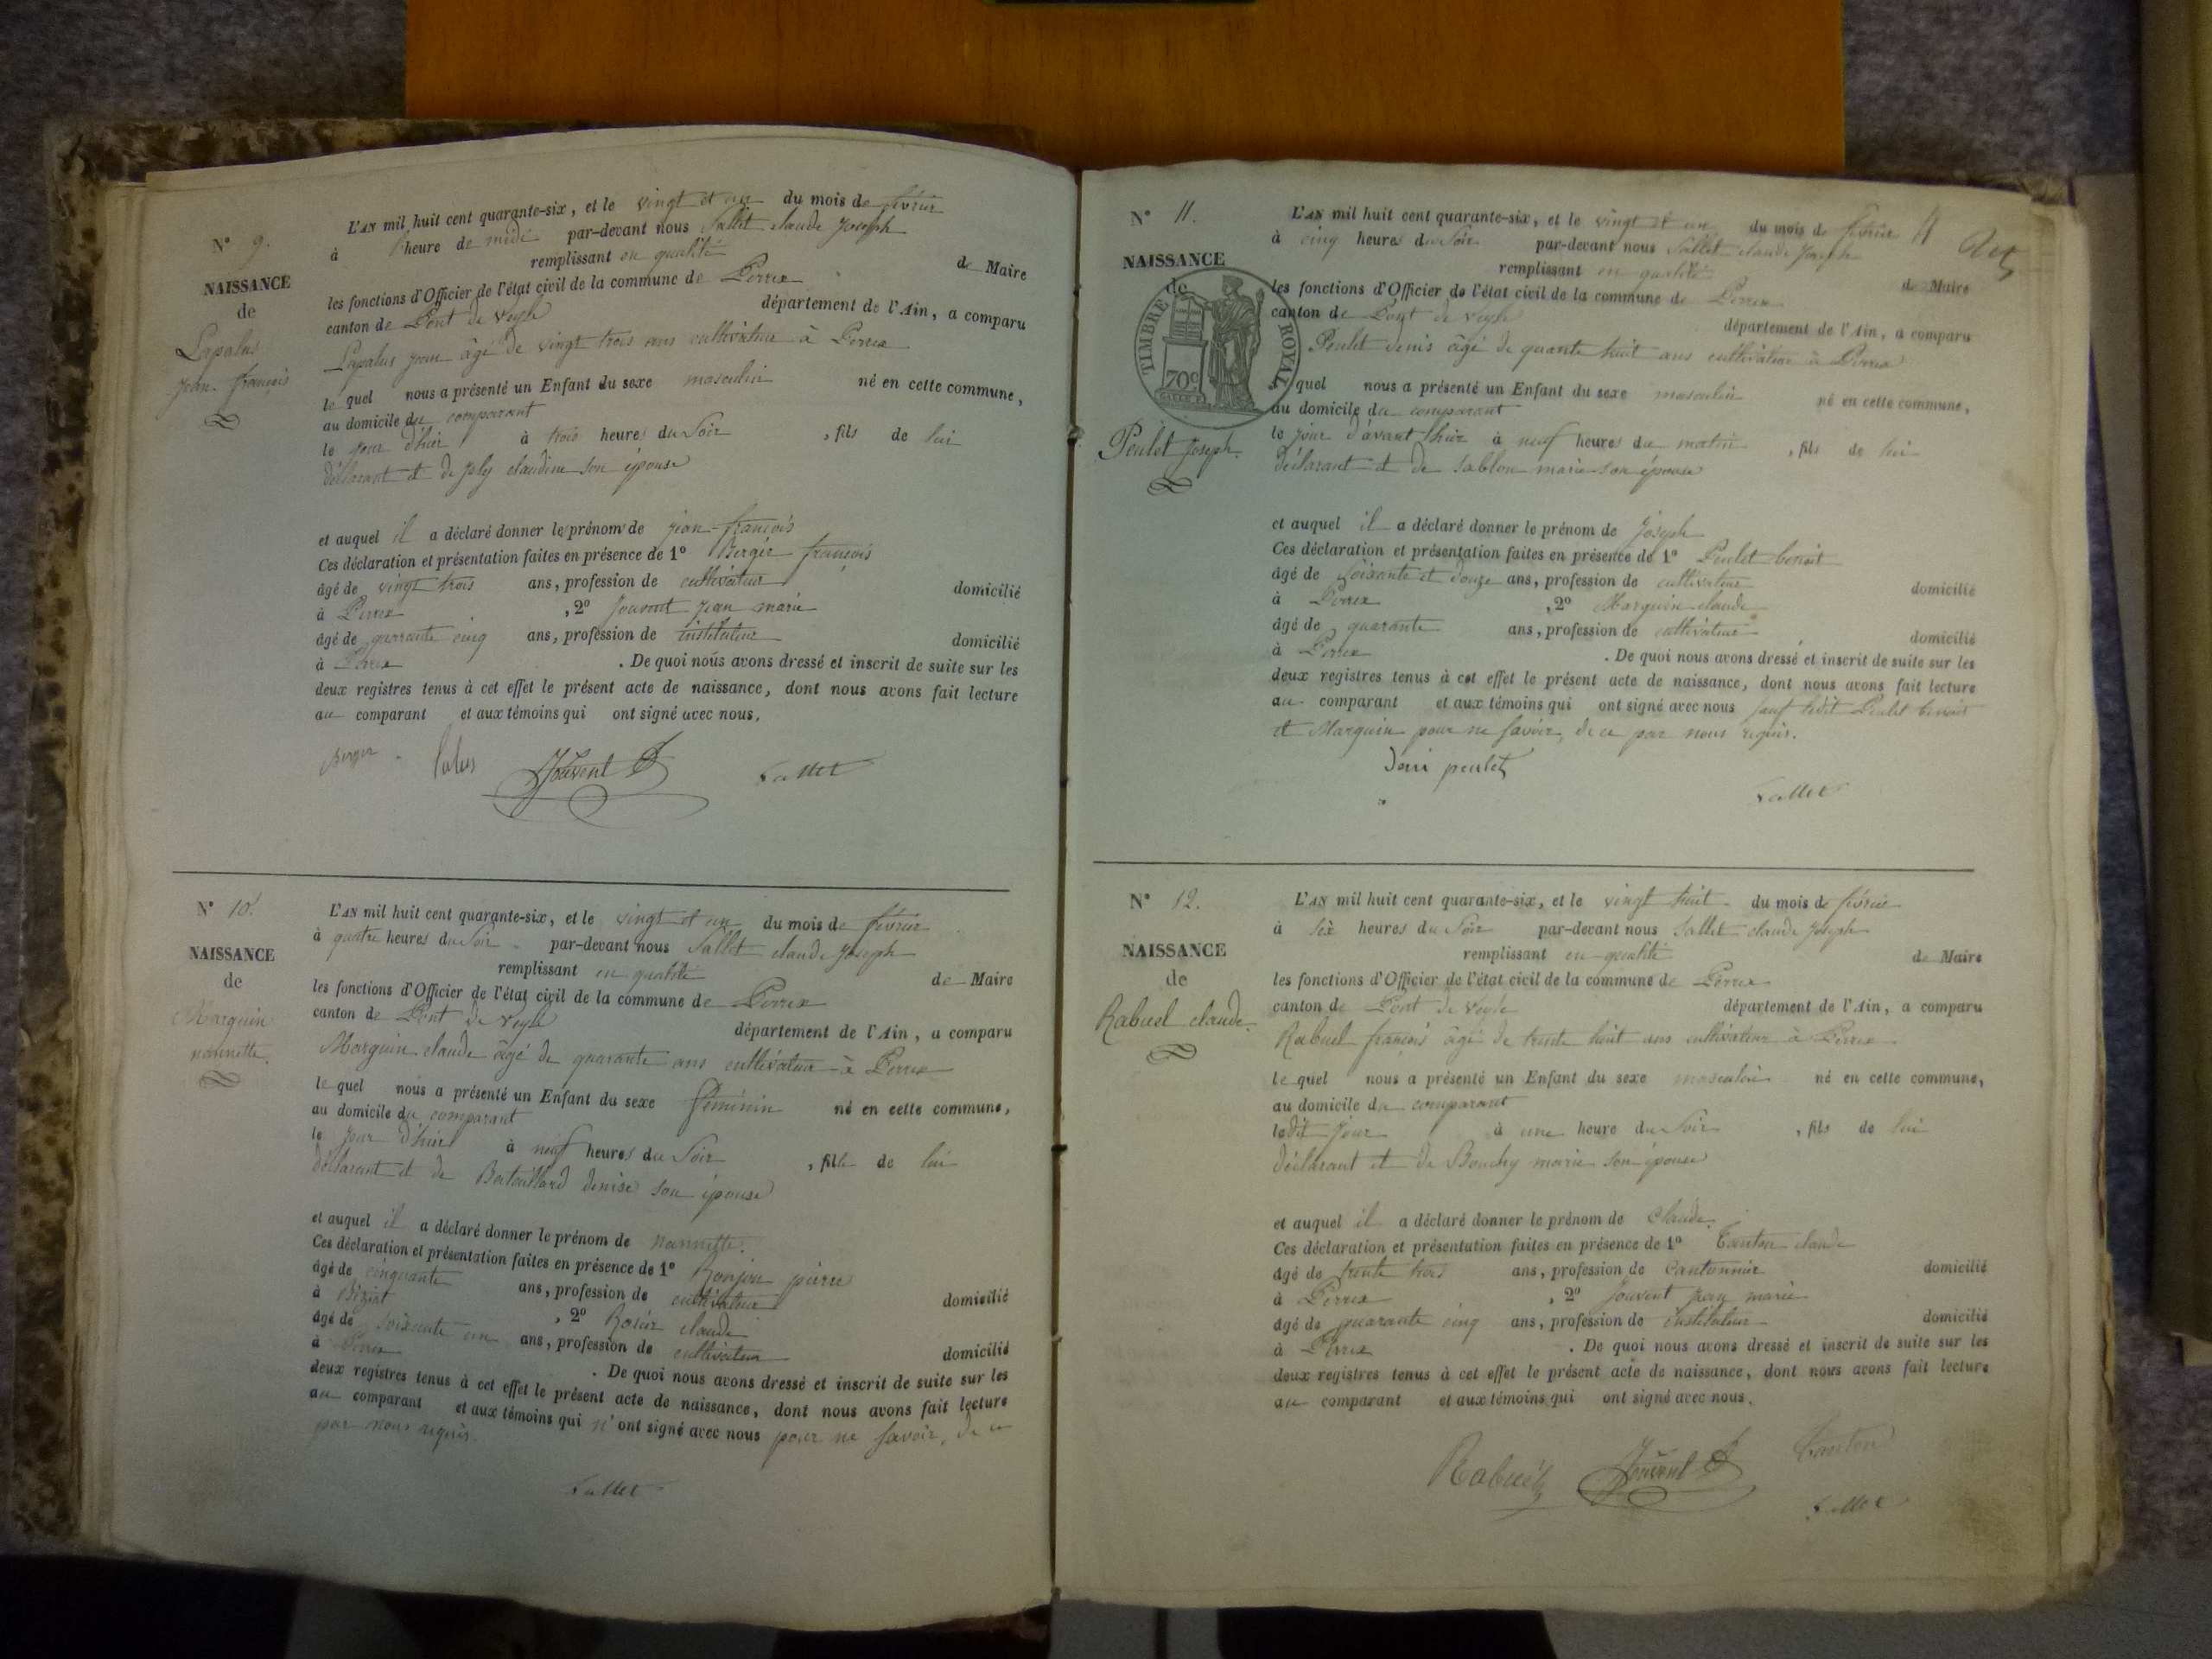 N° 9.
NAISSANCE
de
Lapalus
jean-françois
L'AN mil huit cent quarante-six, et le vingt et un du mois de février
à heure de midi par-devant nous Sallet claude joseph
remplissant en qualité de Maire
les fonctions d'Officier de l'état civil de la commune de Perrex
canton de Pont de veyle département de l'Ain, a comparu
Lapalus jean âgé de vingt trois ans cultivateur à Perrex
le quel nous a présenté un Enfant du sexe masculin né en cette commune,
au domicile du comparant
le jour d'hier à trois heures du Soir , fils de lui
déclarant et de claudine son épouse
et auquel il a déclaré donner le prénom de jean-françois
Ces déclaration et présentation faites en présence de 1° Berger françois
âgé de vingt trois ans, profession de cultivateur domicilié
à Perrex , 2° Jouvent jean marie
âgé de quarante cinq ans, profession de instituteur domicilié
à Perrex . De quoi nous avons dressé et inscrit de suite sur les
deux registres tenus à cet effet le présent acte de naissance, dont nous avons fait lecture
au comparant et aux témoins qui ont signé avec nous.
Berger Jouvent Sallet
N° 10.
NAISSANCE
de
Marguin
nannette.
L'AN mil huit cent quarante-six, et le vingt et un du mois de février
à quatre heures du Soir par-devant nous Sallet claude joseph
remplissant en qualité de Maire
les fonctions d'Officier de l'état civil de la commune de Perrex
canton de Pont de veyle département de l'Ain, a comparu
Marguin claude âgé de quarante ans cultivateur à Perrex
le quel nous a présenté un Enfant du sexe féminin né en cette commune,
au domicile du comparant
le jour d'hier à neuf heures du Soir , fille de lui
déclarant et de denise son épouse
et auquel il a déclaré donner le prénom de nannette.
Ces déclaration et présentation faites en présence de 1° pierre
âgé de cinquante ans, profession de cultivateur domicilié
à Biziat , 2° claude
âgé de soixante un ans, profession de cultivateur domicilié
à Perrex . De quoi nous avons dressé et inscrit de suite sur les
deux registres tenus à cet effet le présent acte de naissance, dont nous avons fait lecture
au comparant et aux témoins qui n'ont signé avec nous pour ne savoir, de ce
par nous requis.
Sallet
N° 11.
NAISSANCE
de
TIMBRE ROYAL
70c
Peulet joseph.
L'AN mil huit cent quarante-six, et le vingt et un du mois de février
à cinq heures du Soir par-devant nous Sallet claude joseph
remplissant en qualité de Maire
les fonctions d'Officier de l'état civil de la commune de Perrex
canton de Pont de veyle département de l'Ain, a comparu
Peulet denis âgé de quante huit ans cultivateur à Perrex
le quel nous a présenté un Enfant du sexe masculin né en cette commune,
au domicile du comparant
le jour d'avant hier à neuf heures du matin , fils de lui
déclarant et de Sablon marie son épouse
et auquel il a déclaré donner le prénom de joseph
Ces déclaration et présentation faites en présence de 1° Peulet benoit
âgé de soixante et douze ans, profession de cultivateur domicilié
à Perrex , 2° Marguin claude
âgé de quarante ans, profession de cultivateur domicilié
à Perrex . De quoi nous avons dressé et inscrit de suite sur les
deux registres tenus à cet effet le présent acte de naissance, dont nous avons fait lecture
au comparant et aux témoins qui ont signé avec nous sauf ledit Peulet benoit
et Marguin pour ne savoir, de ce par nous requis.
Deni peulet
Sallet
N° 12.
NAISSANCE
de
Rabuel claude.
L'AN mil huit cent quarante-six, et le vingt huit du mois de février
à six heures du Soir par-devant nous Sallet claude joseph
remplissant en qualité de Maire
les fonctions d'Officier de l'état civil de la commune de Perrex
canton de Pont de veyle département de l'Ain, a comparu
Rabuel françois âgé de trente huit ans cultivateur à Perrex
le quel nous a présenté un Enfant du sexe masculin né en cette commune,
au domicile du comparant
ledit jour à une heure du Soir , fils de lui
déclarant et de Bouchy marie son épouse
et auquel il a déclaré donner le prénom de Claude.
Ces déclaration et présentation faites en présence de 1° claude
âgé de trente trois ans, profession de Cantonnier domicilié
à Perrex , 2° Jouvent jean marie
âgé de quarante cinq ans, profession de instituteur domicilié
à Perrex . De quoi nous avons dressé et inscrit de suite sur les
deux registres tenus à cet effet le présent acte de naissance, dont nous avons fait lecture
au comparant et aux témoins qui ont signé avec nous.
Rabuel Jouvent
Sallet